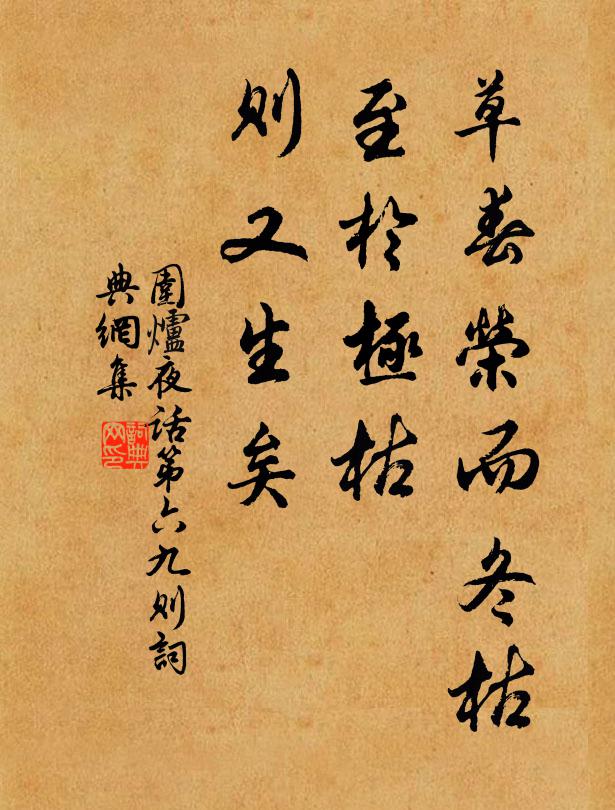 草春榮而冬枯
至於極枯
則又生矣
圍爐夜话第六九则詞
典網集
詞典
网印